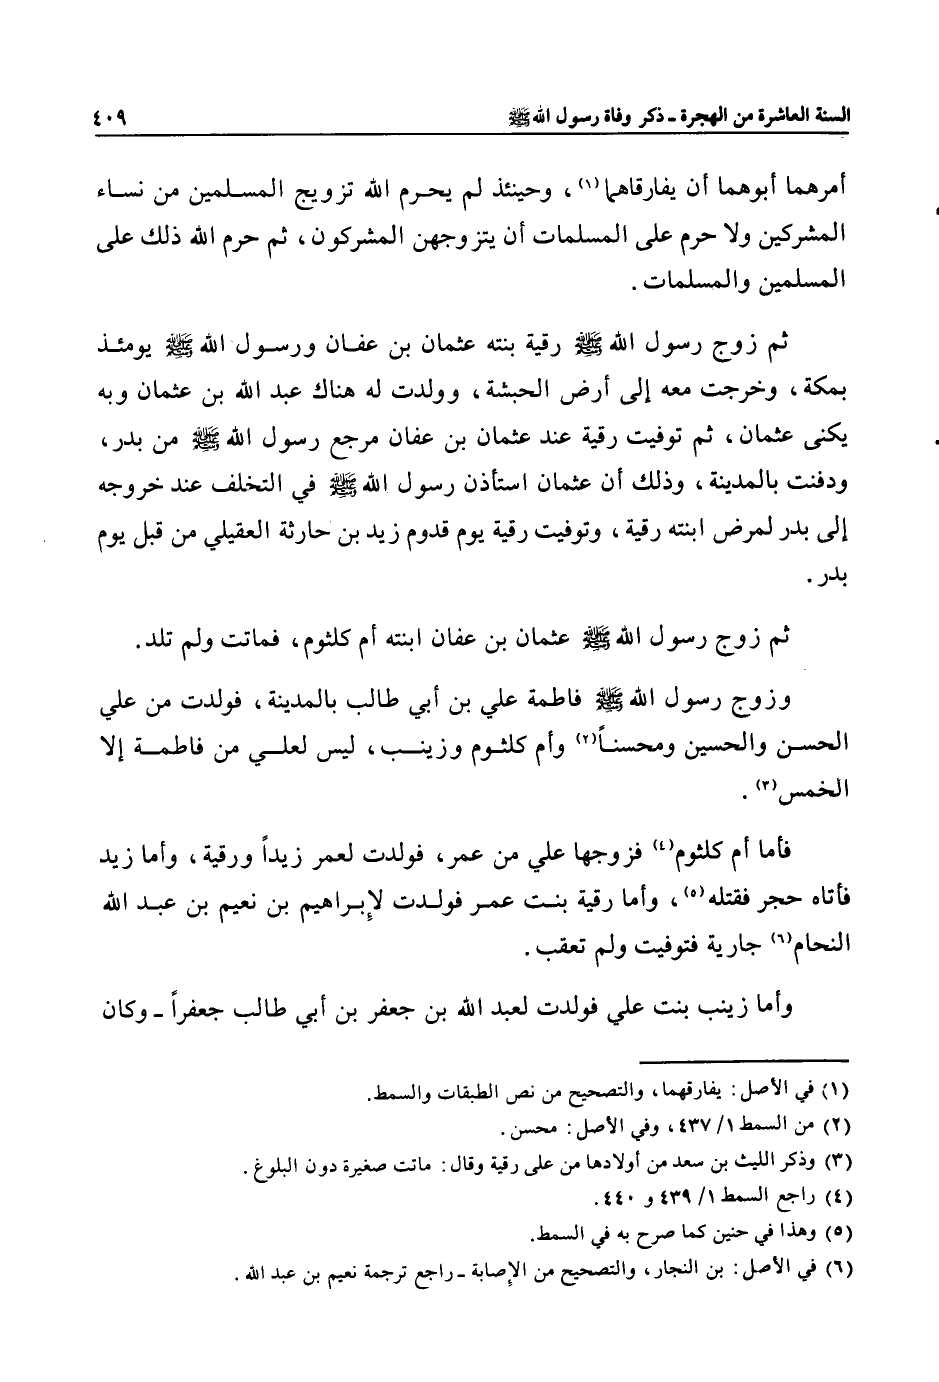 السنة العاشرة من الهجرة - ذكر وفاة رسول الله ﷺ ٤٠٩
أمرهما أبوهما أن يفارقاهما(١)، وحينئذ لم يحرم الله تزويج المسلمين من نساء
المشركين ولا حرم على المسلمات أن يتزوجهن المشركون، ثم حرم الله ذلك على
المسلمين والمسلمات.
ثم زوج رسول الله ﷺ رقية بنته عثمان بن عفان ورسول الله ﷺ يومئذ
بمكة، وخرجت معه إلى أرض الحبشة، وولدت له هناك عبد الله بن عثمان وبه
يكنى عثمان، ثم توفيت رقية عند عثمان بن عفان مرجع رسول الله ﷺ من بدر،
ودفنت بالمدينة، وذلك أن عثمان استأذن رسول الله ﷺ في التخلف عند خروجه
إلى بدر لمرض ابنته رقية، وتوفيت رقية يوم قدوم زيد بن حارثة العقيلي من قبل يوم
بدر.
ثم زوج رسول الله ﷺ عثمان بن عفان ابنته أم كلثوم، فماتت ولم تلد.
وزوج رسول الله ﷺ فاطمة علي بن أبي طالب بالمدينة، فولدت من علي
الحسن والحسين ومحسناً(٢) وأم كلثوم وزينب، ليس لعلي من فاطمة إلا
الخمس(٣).
فأما أم كلثوم(٤) فزوجها علي من عمر، فولدت لعمر زيداً ورقية، وأما زيد
فأتاه حجر فقتله(٥)، وأما رقية بنت عمر فولدت لإبراهيم بن نعيم بن عبد الله
النحام(٦) جارية فتوفيت ولم تعقب.
وأما زينب بنت علي فولدت لعبد الله بن جعفر بن أبي طالب جعفراً - وكان
(١) في الأصل: يفارقهما، والتصحيح من نص الطبقات والسمط.
(٢) من السمط ١/ ٤٣٧، وفي الأصل: محسن.
(٣) وذكر الليث بن سعد من أولادها من على رقية وقال: ماتت صغيرة دون البلوغ.
(٤) راجع السمط ١/ ٤٣٩ و ٤٤٠.
(٥) وهذا في حنين كما صرح به في السمط.
(٦) في الأصل: بن النجار، والتصحيح من الإصابة - راجع ترجمة نعيم بن عبد الله.